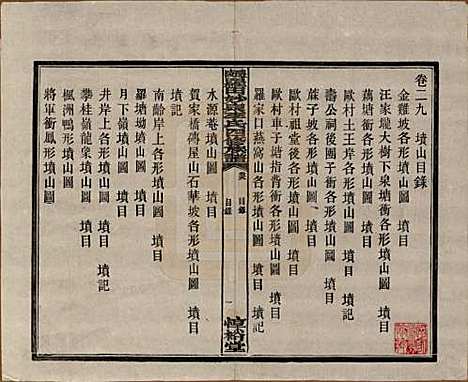 卷二九 墳山目錄
金雞坡各形墳山圖 墳目
汪家壠大樹下泉塘衝各形墳山圖 墳目
藕塘衝各形墳山圖 墳目
歐村土王岸各形墳山圖 墳目
壽公祠後團子衝各形墳山圖 墳目
蔴子坡各形墳山圖 墳目
歐村祖堂後各形墳山圖 墳目
歐村車子塘指背衝各形墳山圖 墳目
羅家口燕窩山各形墳山圖 墳目 墳記
目錄
惇敘堂
水源菴墳山圖 墳目
賀家橋傳屋山石華坡各形墳山圖 墳目
墳記
南齡岸上各形墳山圖 墳目
羅塘坳墳山圖 墳目
月下嶺墳山圖 墳目
井岸上各形墳山圖 墳目
攀桂嶺龍泉墳山圖 墳目
楓洲鴨形墳山圖 墳目
將軍衝鳳形墳山圖 墳目